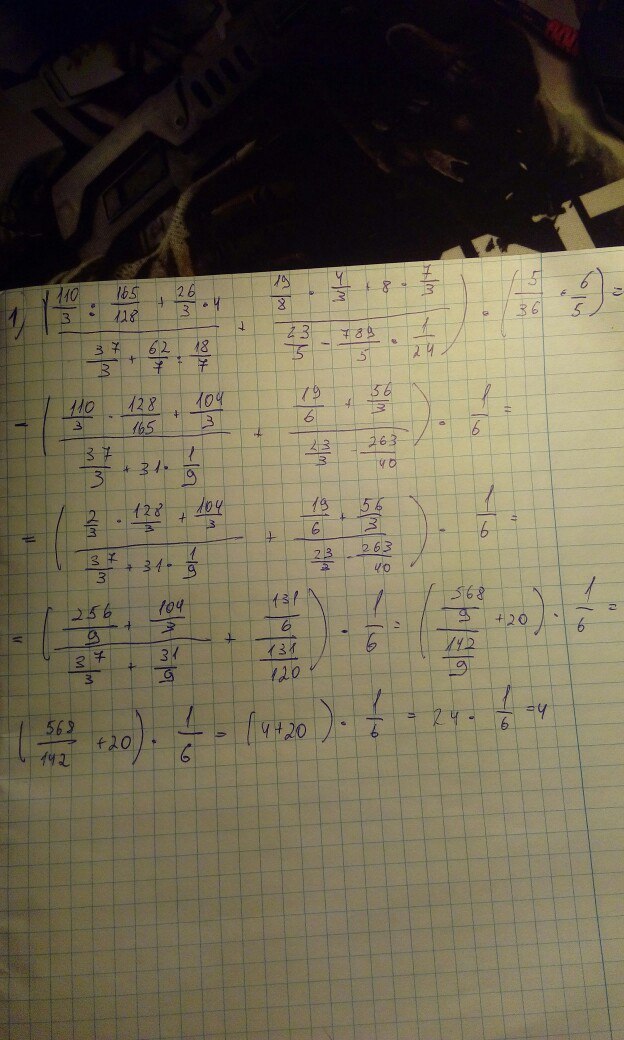 1) ( (110/3 : 165/128 + 26/3 · 4) / (37/3 + 62/7 : 18/7) + (19/8 · 4/3 + 8 · 7/3) / (23/5 - 789/5 · 1/24) ) · ( 5/36 · 6/5 ) =
- ( (110/3 · 128/165 + 104/3) / (37/3 + 31 · 1/9) + (19/6 + 56/3) / (23/3 - 263/40) ) · 1/6 =
= ( (2/3 · 128/3 + 104/3) / (37/3 + 31 · 1/9) + (19/6 + 56/3) / (23/3 - 263/40) ) · 1/6 =
= ( (256/9 + 104/3) / (37/3 + 31/9) + (131/6) / (131/120) ) · 1/6 = ( (568/9) / (142/9) + 20 ) · 1/6 =
( 568/142 + 20 ) · 1/6 = ( 4+20 ) · 1/6 = 24 · 1/6 = 4